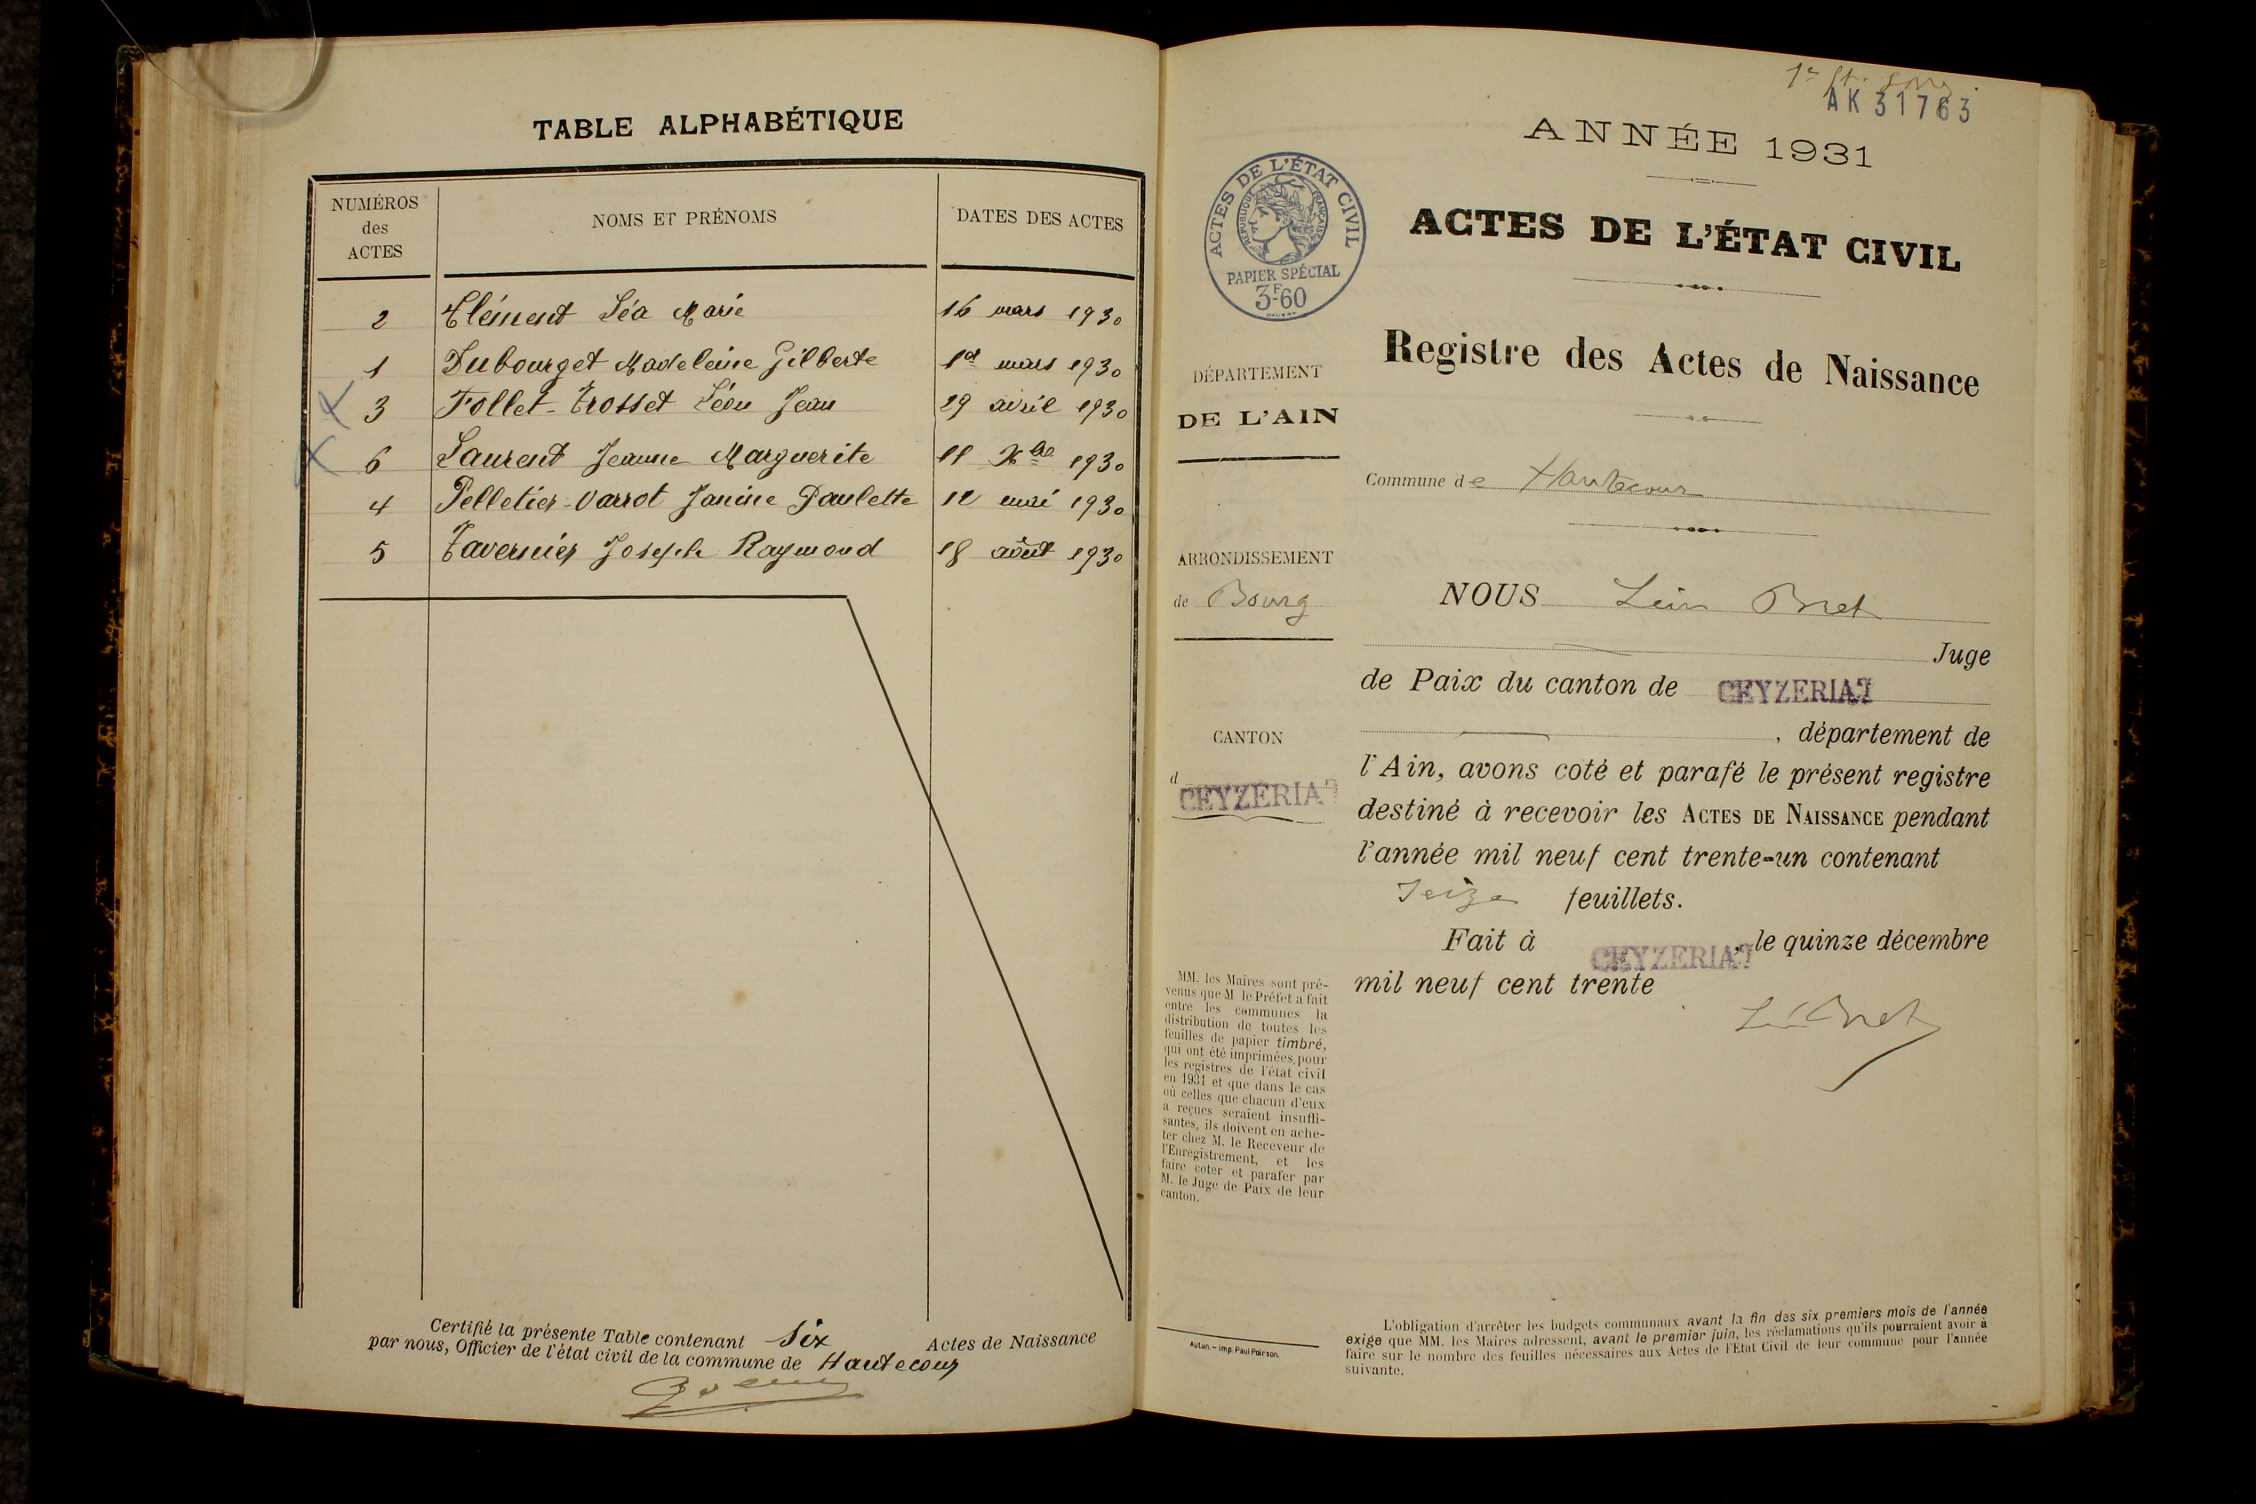 TABLE ALPHABÉTIQUE
NUMÉROS
des
ACTES
NOMS ET PRÉNOMS
DATES DES ACTES
2 Clément Léa Marie 16 mars 1930
1 Dubourget Madeleine Gilberte 1er mars 1930
3 Follet-Trosset Léon Jean 29 avril 1930
6 Laurent Jeanne Marguerite 11 Xbre 1930
4 Pelletier-Varrot Janine Paulette 12 mai 1930
5 Tavernier Joseph Raymond 18 août 1930
Certifié la présente Table contenant Six Actes de Naissance
par nous, Officier de l'état civil de la commune de Hautecour
AK 31763
ANNÉE 1931
ACTES DE L'ÉTAT CIVIL
RÉPUBLIQUE FRANÇAISE
PAPIER SPÉCIAL
3F60
ACTES DE L'ÉTAT CIVIL
Registre des Actes de Naissance
DÉPARTEMENT
DE L'AIN
Commune de Hautecour
ARRONDISSEMENT
de Bourg
NOUS Léon Bret
Juge
de Paix du canton de CEYZERIAT
, département de
CANTON
d
CEYZERIAT
l'Ain, avons coté et parafé le présent registre
destiné à recevoir les ACTES DE NAISSANCE pendant
l'année mil neuf cent trente-un contenant
Seize feuillets.
Fait à CEYZERIAT, le quinze décembre
mil neuf cent trente
L. Bret
MM. les Maires sont pré-
venus que M le Préfet a fait
entre les communes la
distribution de toutes les
feuilles de papier timbré,
qui ont été imprimées pour
les registres de l'état civil
en 1931 et que dans le cas
où celles que chacun d'eux
a reçues seraient insuffi-
santes, ils doivent en ache-
ter chez M. le Receveur de
l'Enregistrement, et les
faire coter et parafer par
M. le Juge de Paix de leur
canton.
Autun. – Imp. Paul Poirson.
L'obligation d'arrêter les budgets communaux avant la fin des six premiers mois de l'année
exige que MM. les Maires adressent, avant le premier juin, les réclamations qu'ils pourraient avoir à
faire sur le nombre des feuilles nécessaires aux Actes de l'Etat Civil de leur commune pour l'année
suivante.